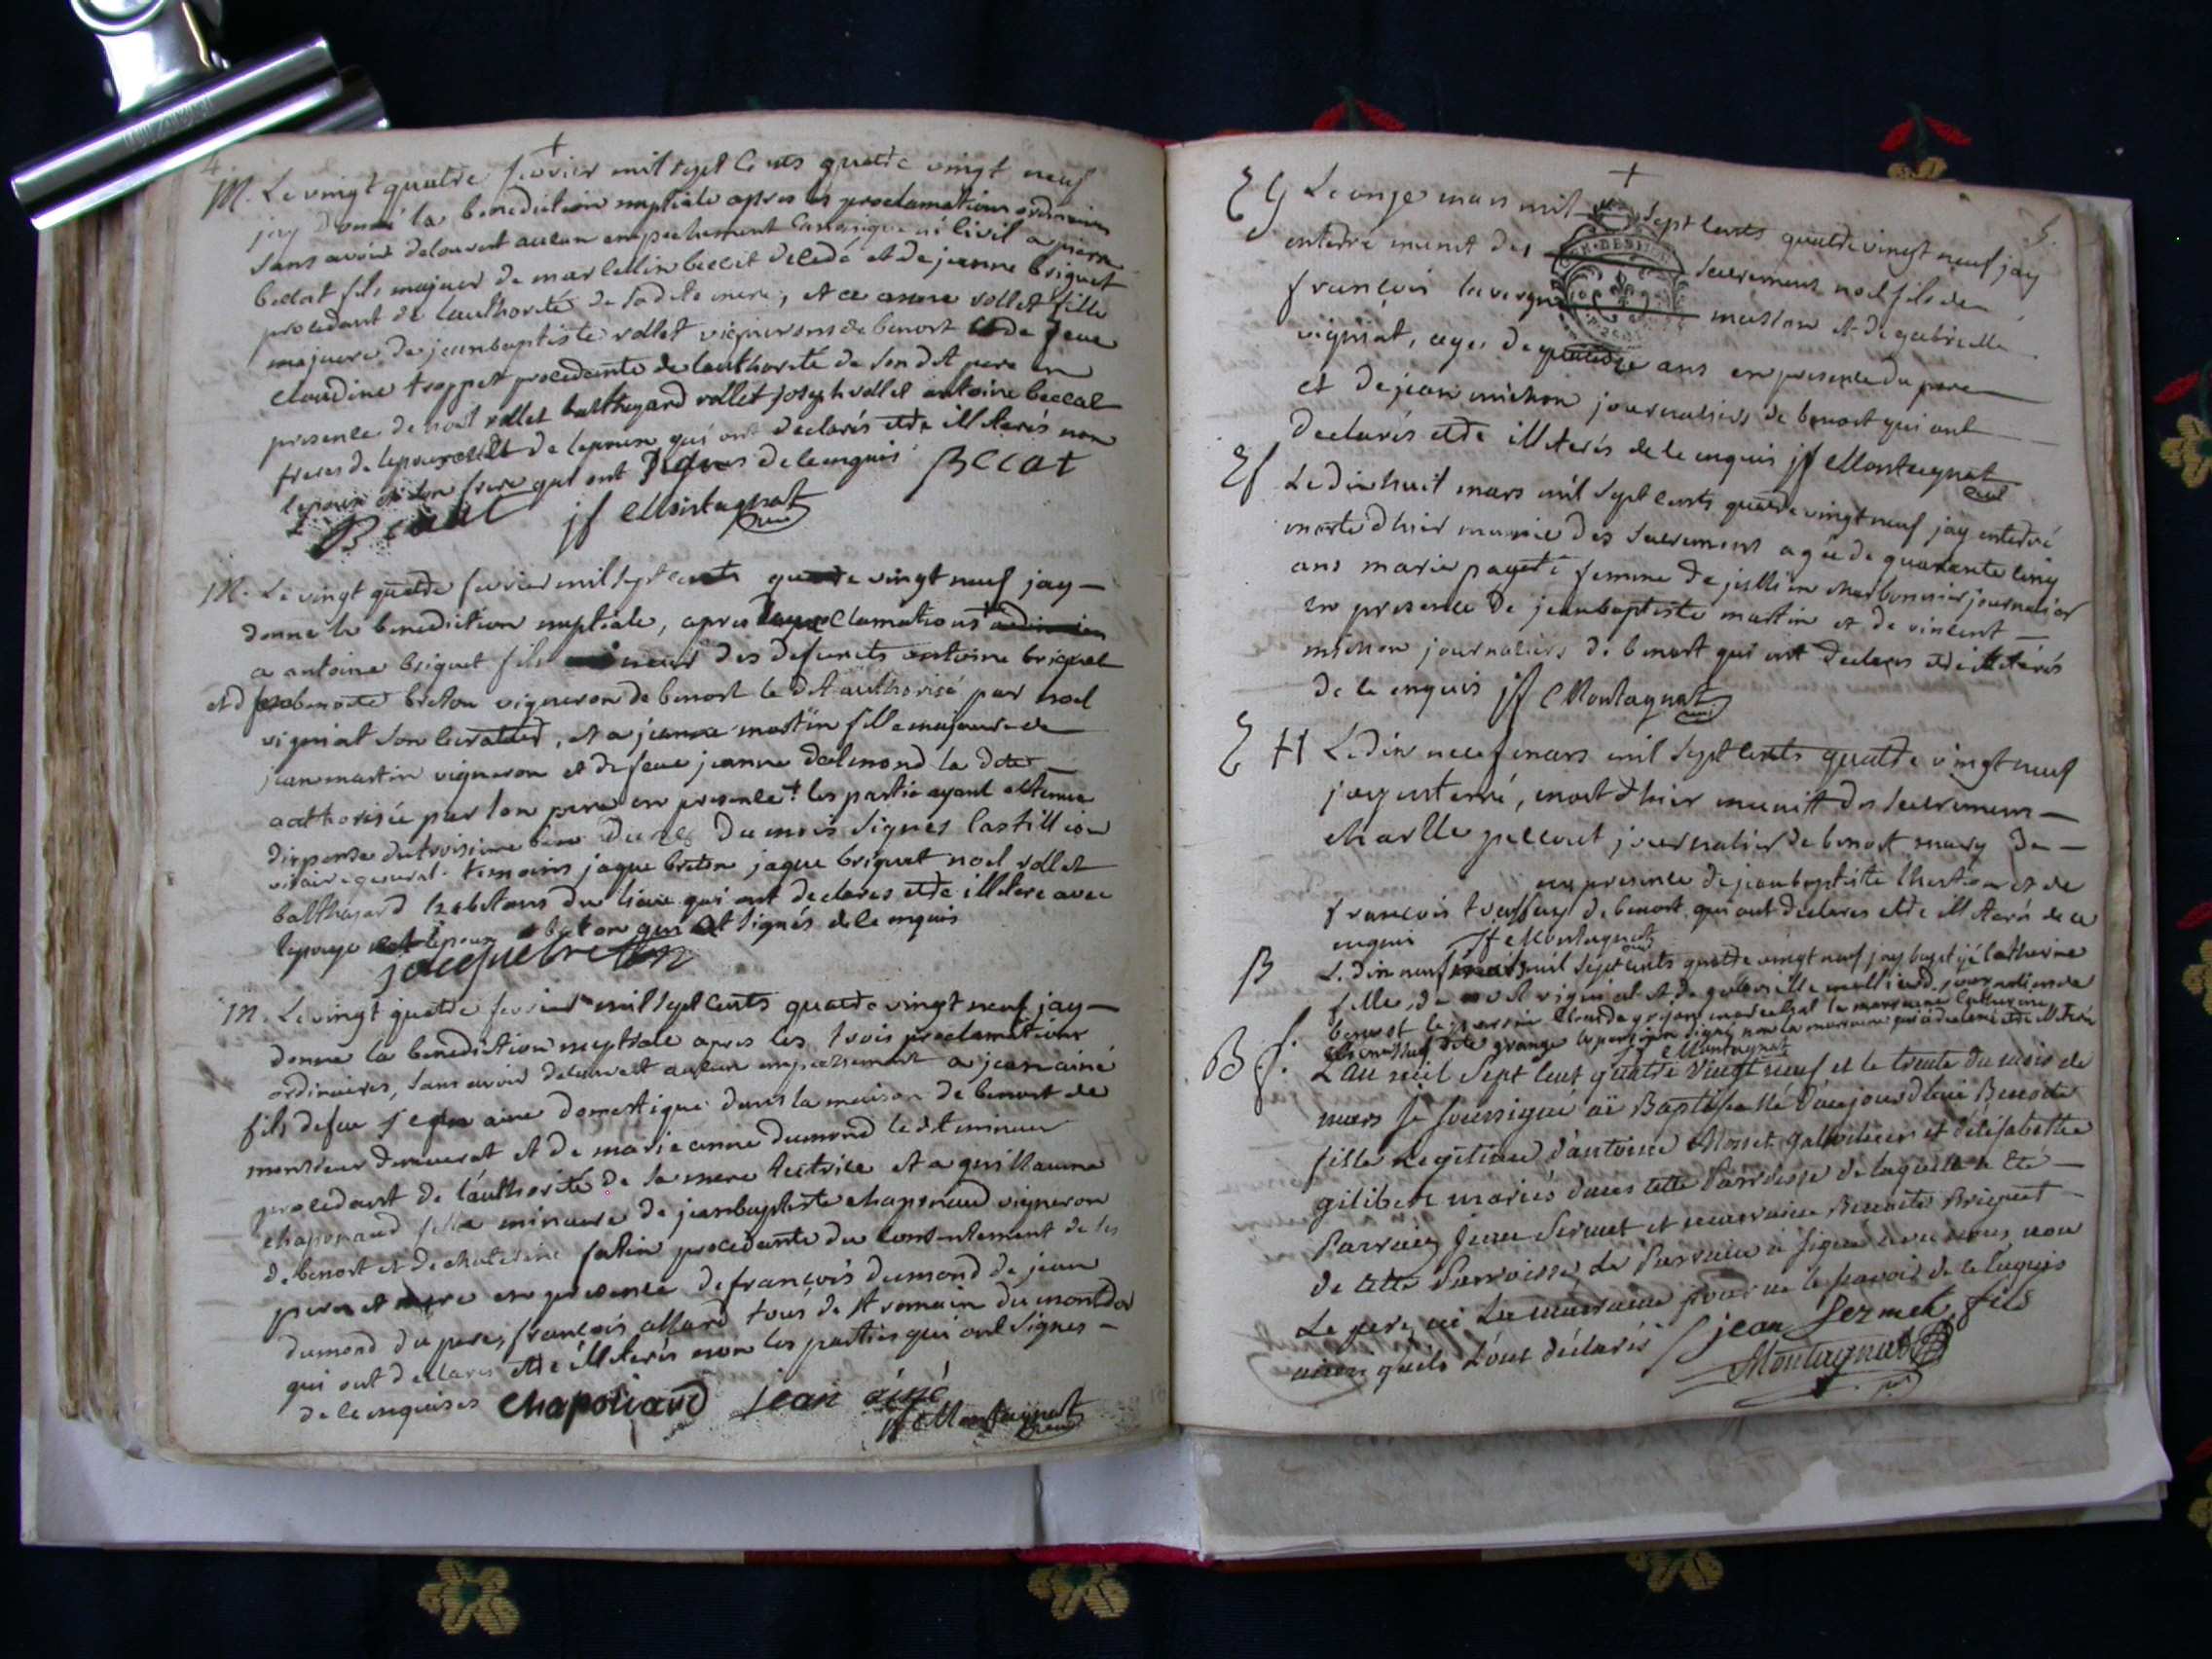 4.
M. Le vingt quatre fevrier mil sept cents quatre vingt neuf
jay donné la benediction nuptiale apres les proclamations ordinaires
sans avoir decouvert aucun empechement canonique ni civil a pierre
beccat fils majeur de marcellin beccat decedé et de jeanne briguet
procedant de l'authorité de sadite mere, et a anne rollet fille
majeure de jeanbaptiste rollet vigneron de benost et de feue
claudine troppet procedante de l'authorité de son dit pere en
presence de noel rollet balthazard rollet joseph rollet antoine beccat
freres de qui ont declarés etre illiterés non
lepoux et son frere qui ont signés de ce enquis Becat
Becaat jf Montagnat curé
M. Le vingt quatre fevrier mil sept cents quatre vingt neuf jay
donné la benediction nuptiale, apres proclamations
a antoine briguet fils mineur des defuncts antoine briguet
et de benoite breton vigneron de benost le dit authorisé par noel
vigniat son curateur, et a jeanne martin fille majeure de
jean martin vigneron et de feue jeanne dalmond la dite
authorisée par son pere en presence + les partie ayant obtenue
dispense du troisieme du 20 du mois signés castillion
vicaire general. temoins jaque breton jaque briguet noel rollet
balthazard habitans du lieu qui ont declares etre illitere avec
breton qui at signés de ce enquis
jacque breton
M. Le vingt quatre fevrier mil sept cents quatre vingt neuf jay
donne la benediction nuptiale apres les trois proclamations
ordinaires, sans avoir decouvert aucun empechement a jean ainé
fils de feu jean aine domestique dans la maison de benost de
monsieur et de marie anne dumond le dit mineur
procedant de l'authorité de sa mere tutrice et a guillaume
chaponaud fille mineure de jeanbaptiste chaponaud vigneron
de benost et de chaterine fatin procedante du consentement de ses
pere et mere en presence de françois dumond de jean
dumond du pere, françois allard tous de st romain du montdor
qui ont declares etre illiterés non les parties qui ont signes
de ce enquises chaponard jean ainé
jf Montagnat curé
5.
E G Le onze mars mil sept cents quatre vingt neuf jay
enterré muni des sacremens noel fils de
françois lavergne masson et de gabrielle
vigniat, agé de quatorze ans en presence du pere
et de jean michon journaliers de benost qui ont
declarés etre illiterés de ce enquis jf Montagnat curé
E f Le dix huit mars mil sept cents quatre vingt neuf jay enterré
morte d'hier munie des sacremens agée de quarante cinq
ans marie payet femme de jullien charbonnier journalier
en presence de jeanbaptiste martin et de vincent
michon journaliers de benost qui ont declares etre illiterés
de ce enquis jf Montagnat curé
E H Le dix neuf mars mil sept cents quatre vingt neuf
jay enterré, mort d'hier munit des sacremens
charlle journalier de benost mary de
en presence de jeanbaptiste et de
françois de benost, qui ont declares etre illiterés de ce
enquis jf Montagnat curé
B Le dix neuf mars mil sept cents quatre vingt neuf jay baptizé catherine
fille de noel vigniat et de gabrielle journalier de
benost le parrain Claude la marraine Catherine
le parrain signé non la marraine qui a declaré etre illiterée
jf Montagnat
B f. L'an mil sept cent quatre vingt neuf et le trente du mois de
mars je soussigné ai Baptisé née d'aujourd'hui Benoite
fille legitime d'antoine Monet et d'elisabeth
gilibert mariés dans cette Parroisse de laquelle a été
Parrain jean Sermet et marraine Benoite Briguet
de cette Parroisse, Le Parrain a signé avec nous, non
Le pere, ni La marraine pour ne le sçavoir de ce enquis
ainsy qu'ils L'ont déclarés jean Sermet fils
Montagnat curé